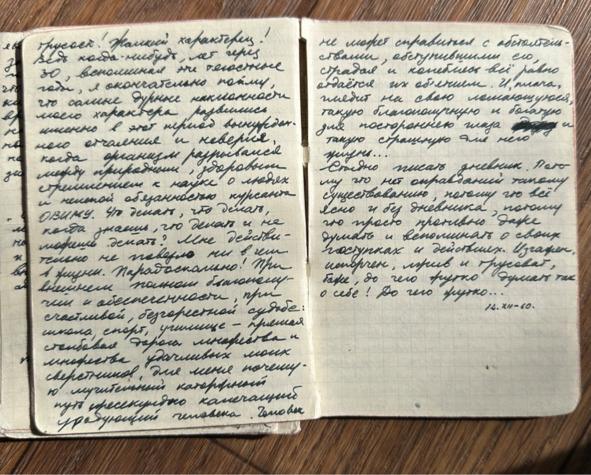 трусость! Жалкий характерец!
Ведь когда-нибудь, лет через
30, вспоминая эти тягостные
годы, я окончательно пойму,
что самые дурные наклонности
моего характера развились
именно в этот период вынужден-
ного отчаяния и неверия,
когда организм разрывался
между природным, здоровым
стремлением к науке о людях
и нелепой обязанностью курсанта
ОВИМУ. Что делать, что делать,
когда знаешь, что делать и не
можешь делать? Мне действи-
тельно не повезло ни в чем
в жизни. Парадоксально! При
внешнем полном благополу-
чии и обеспеченности, при
счастливой, безгорестной судьбе:
школа, спорт, училище – прямая
столбовая дорога множества и
множества удачливых моих
сверстников, для меня почему-
то мучительный каторжный
путь ежесекундно калечащий
уродующий человека. Человек
не может справиться с обстоятель-
ствами, обступившими его,
страдая и колеблясь всё равно
отдаётся их обжатиям. И, плача,
глядит на свою ломающуюся,
такую благополучную и богатую
для постороннего глаза и
такую страшную для него
жизнь...
Стыдно писать дневник. Пото-
му что нет оправданий такому
существованию, потому что всё
ясно и без дневника, потому
что просто противно даже
думать и вспоминать о своих
поступках и действиях. Изгажен,
испорчен, лжив и трусоват,
боже, до чего жутко думать так
о себе! До чего жутко...
14.XII-60.